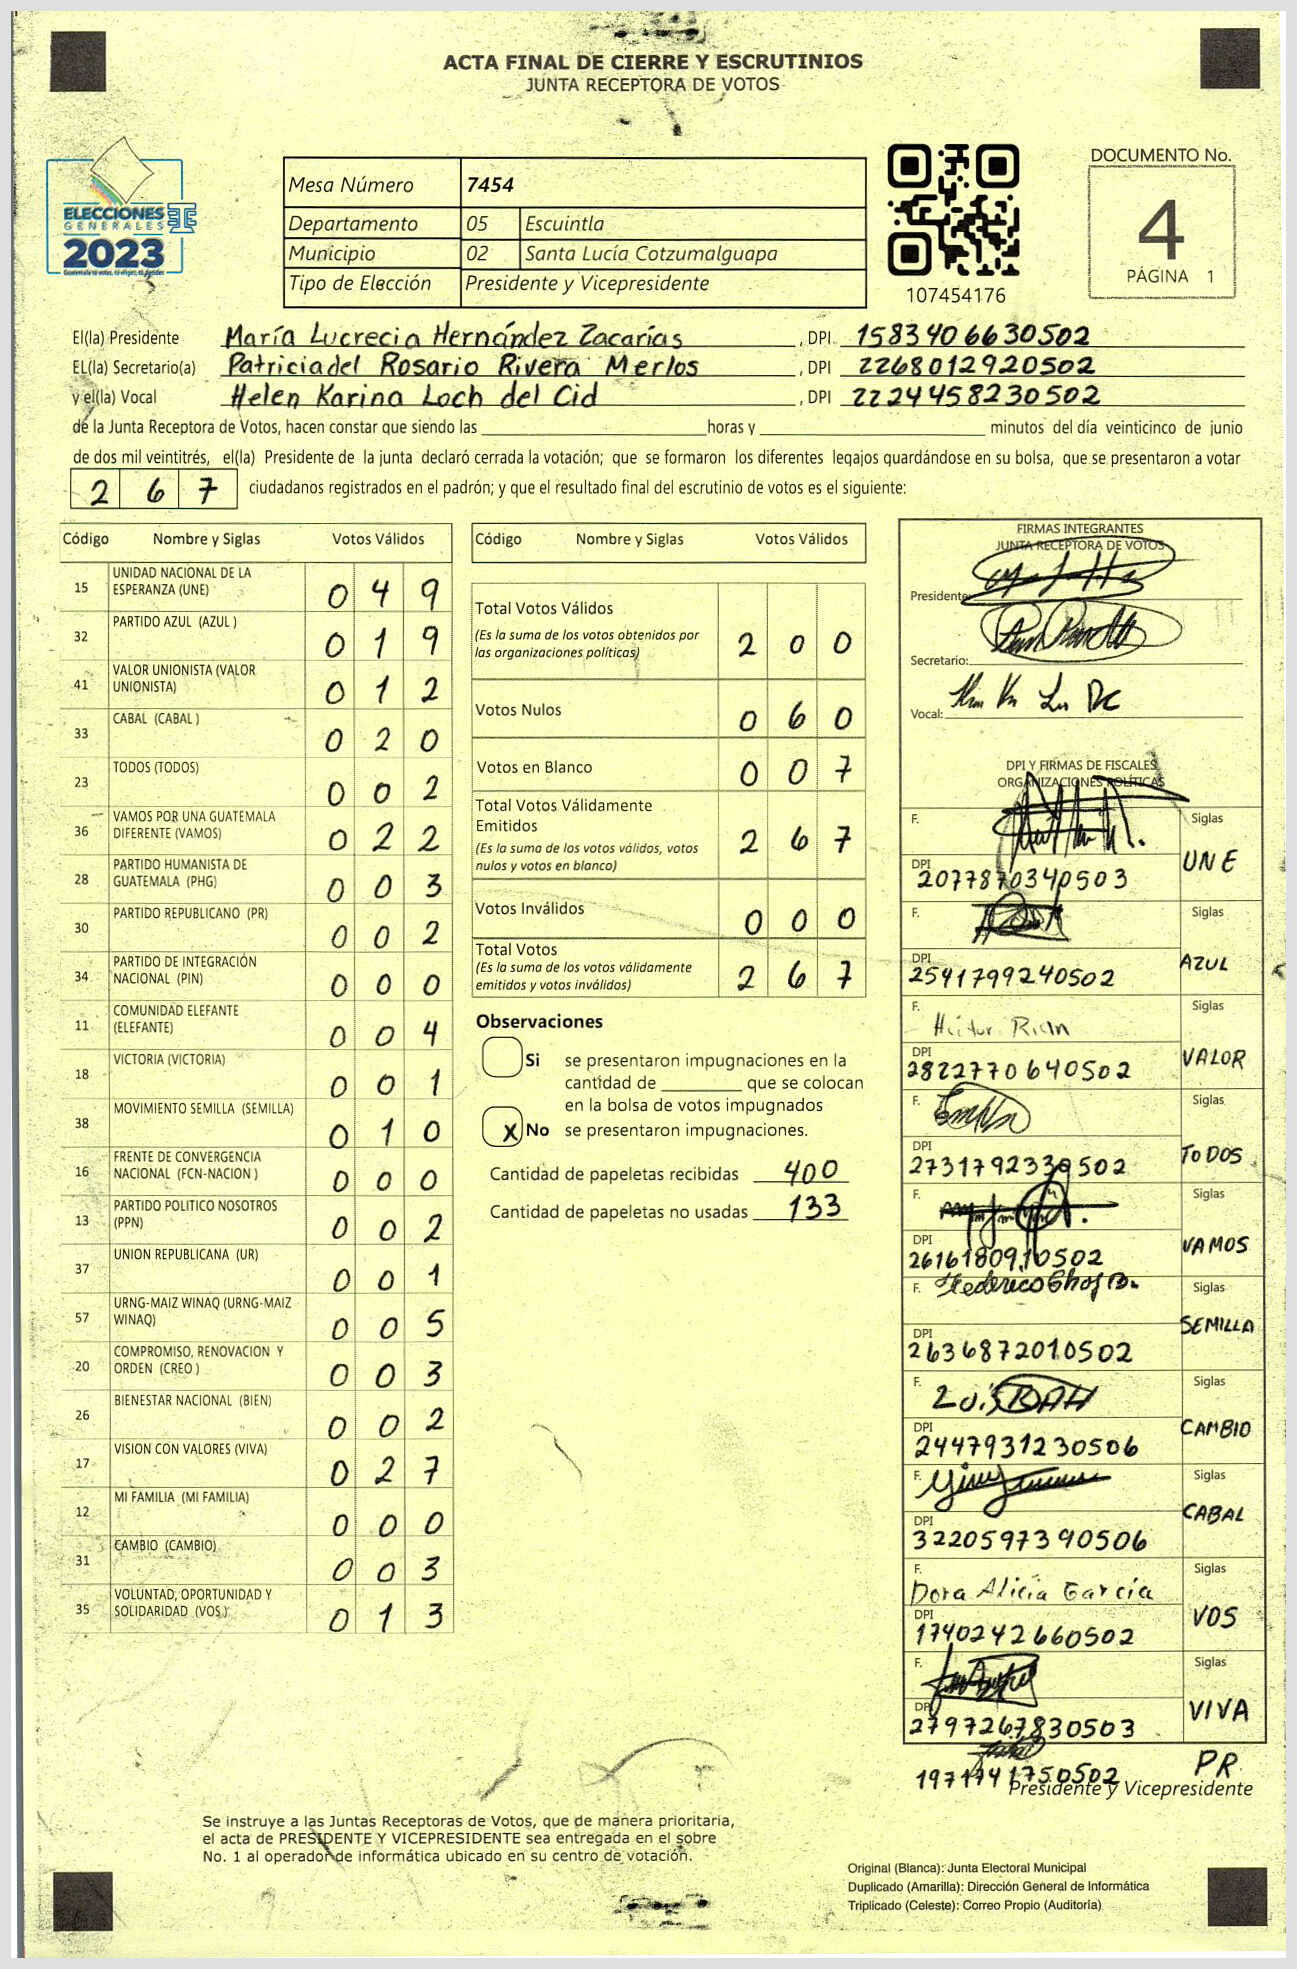 ACTA FINAL DE CIERRE Y ESCRUTINIOS
JUNTA RECEPTORA DE VOTOS
ELECCIONES
GENERALES
2023
Guatemala tú votas, tú eliges, tú decides
Mesa Número 7454
Departamento 05 Escuintla
Municipio 02 Santa Lucía Cotzumalguapa
Tipo de Elección Presidente y Vicepresidente
107454176
DOCUMENTO No.
4
PÁGINA 1
El(la) Presidente María Lucrecia Hernández Zacarías , DPI 1583406630502
EL(la) Secretario(a) Patricia del Rosario Rivera Merlos , DPI 2268012920502
y el(la) Vocal Helen Karina Loch del Cid , DPI 2224458230502
de la Junta Receptora de Votos, hacen constar que siendo las horas y minutos del día veinticinco de junio
de dos mil veintitrés, el(la) Presidente de la junta declaró cerrada la votación; que se formaron los diferentes legajos guardándose en su bolsa, que se presentaron a votar
2 6 7 ciudadanos registrados en el padrón; y que el resultado final del escrutinio de votos es el siguiente:
Código Nombre y Siglas Votos Válidos
15 UNIDAD NACIONAL DE LA
ESPERANZA (UNE) 0 4 9
32 PARTIDO AZUL (AZUL ) 0 1 9
41 VALOR UNIONISTA (VALOR
UNIONISTA) 0 1 2
33 CABAL (CABAL ) 0 2 0
23 TODOS (TODOS) 0 0 2
36 VAMOS POR UNA GUATEMALA
DIFERENTE (VAMOS) 0 2 2
28 PARTIDO HUMANISTA DE
GUATEMALA (PHG) 0 0 3
30 PARTIDO REPUBLICANO (PR) 0 0 2
34 PARTIDO DE INTEGRACIÓN
NACIONAL (PIN) 0 0 0
11 COMUNIDAD ELEFANTE
(ELEFANTE) 0 0 4
18 VICTORIA (VICTORIA) 0 0 1
38 MOVIMIENTO SEMILLA (SEMILLA) 0 1 0
16 FRENTE DE CONVERGENCIA
NACIONAL (FCN-NACION ) 0 0 0
13 PARTIDO POLITICO NOSOTROS
(PPN) 0 0 2
37 UNION REPUBLICANA (UR) 0 0 1
57 URNG-MAIZ WINAQ (URNG-MAIZ
WINAQ) 0 0 5
20 COMPROMISO, RENOVACION Y
ORDEN (CREO ) 0 0 3
26 BIENESTAR NACIONAL (BIEN) 0 0 2
17 VISION CON VALORES (VIVA) 0 2 7
12 MI FAMILIA (MI FAMILIA) 0 0 0
31 CAMBIO (CAMBIO) 0 0 3
35 VOLUNTAD, OPORTUNIDAD Y
SOLIDARIDAD (VOS ) 0 1 3
Código Nombre y Siglas Votos Válidos
Total Votos Válidos
(Es la suma de los votos obtenidos por
las organizaciones políticas) 2 0 0
Votos Nulos 0 6 0
Votos en Blanco 0 0 7
Total Votos Válidamente
Emitidos
(Es la suma de los votos válidos, votos
nulos y votos en blanco) 2 6 7
Votos Inválidos 0 0 0
Total Votos
(Es la suma de los votos válidamente
emitidos y votos inválidos) 2 6 7
Observaciones
Si se presentaron impugnaciones en la
cantidad de que se colocan
en la bolsa de votos impugnados
X No se presentaron impugnaciones.
Cantidad de papeletas recibidas 400
Cantidad de papeletas no usadas 133
FIRMAS INTEGRANTES
JUNTA RECEPTORA DE VOTOS
Presidente:
Secretario:
Vocal:
DPI Y FIRMAS DE FISCALES
ORGANIZACIONES POLÍTICAS
F. Siglas
DPI 2077870340503 UNE
F. Siglas
DPI 2541799240502 AZUL
F. Siglas
DPI 2822770640502 VALOR
F. Siglas
DPI 2731792330502 TODOS
F. Siglas
DPI 2616180910502 VAMOS
F. Federico Siglas
DPI 2636872010502 SEMILLA
F. Luis Siglas
DPI 2447931230506 CAMBIO
F. Siglas
DPI 3220597390506 CABAL
F. Dora Alicia García Siglas
DPI 1740242660502 VOS
F. Siglas
DPI 2797267830503 VIVA
1971741750502 PR
Presidente y Vicepresidente
Se instruye a las Juntas Receptoras de Votos, que de manera prioritaria,
el acta de PRESIDENTE Y VICEPRESIDENTE sea entregada en el sobre
No. 1 al operador de informática ubicado en su centro de votación.
Original (Blanca): Junta Electoral Municipal
Duplicado (Amarilla): Dirección General de Informática
Triplicado (Celeste): Correo Propio (Auditoría)